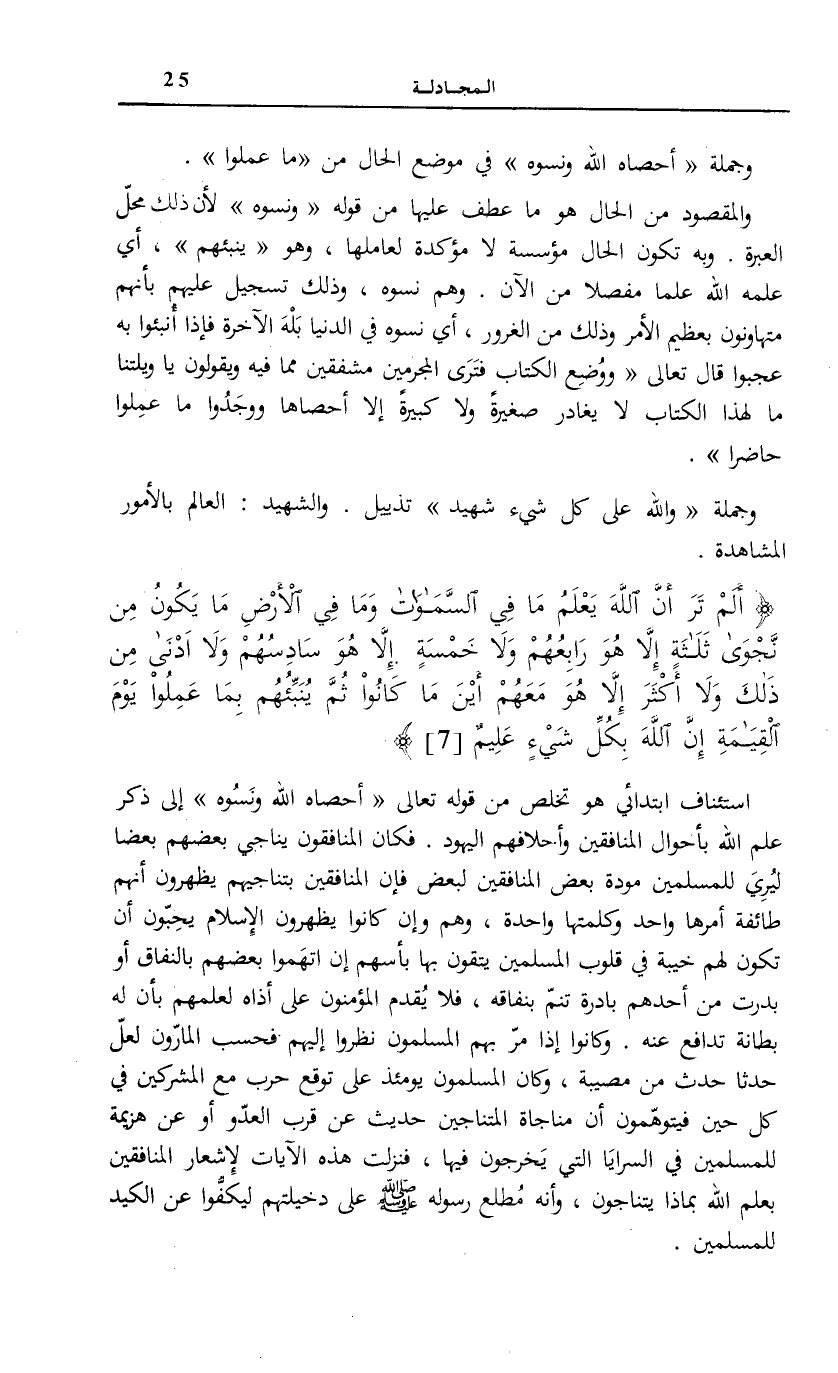 المجادلة 25
وجملة « أحصاه الله ونسوه » في موضع الحال من «ما عملوا » .
والمقصود من الحال هو ما عطف عليها من قوله « ونسوه » لأن ذلك محلّ
العبرة . وبه تكون الحال مؤسسة لا مؤكدة لعاملها ، وهو « ينبئهم » ، أي
علمه الله علما مفصلا من الآن . وهم نسوه ، وذلك تسجيل عليهم بأنهم
متهاونون بعظيم الأمر وذلك من الغرور ، أي نسوه في الدنيا بَلْهَ الآخرة فإذا أُنبئوا به
عجبوا قال تعالى « ووُضِع الكتاب فتَرَى المجرمين مشفقين مما فيه ويقولون يا ويلتنا
ما لهذا الكتاب لا يغادر صغيرةً ولا كبيرةً إلا أحصاها ووجَدُوا ما عمِلوا
حاضرا » .
وجملة « والله على كل شيء شهيد » تذييل . والشهيد : العالم بالأمور
المشاهدة .
﴿ أَلَمْ تَرَ أَنَّ ٱللَّهَ يَعْلَمُ مَا فِي ٱلسَّمَـٰوَٰتِ وَمَا فِي ٱلْأَرْضِ مَا يَكُونُ مِن
نَّجْوَىٰ ثَلَـٰثَةٍ إِلَّا هُوَ رَابِعُهُمْ وَلَا خَمْسَةٍ إِلَّا هُوَ سَادِسُهُمْ وَلَا أَدْنَىٰ مِن
ذَٰلِكَ وَلَا أَكْثَرَ إِلَّا هُوَ مَعَهُمْ أَيْنَ مَا كَانُواْ ثُمَّ يُنَبِّئُهُم بِمَا عَمِلُواْ يَوْمَ
ٱلْقِيَـٰمَةِ إِنَّ ٱللَّهَ بِكُلِّ شَيْءٍ عَلِيمٌ [7] ﴾
استئناف ابتدائي هو تخلص من قوله تعالى « أحصاه الله ونَسُوه » إلى ذكر
علم الله بأحوال المنافقين وأحلافهم اليهود . فكان المنافقون يناجي بعضهم بعضا
ليُرِيَ للمسلمين مودة بعض المنافقين لبعض فإن المنافقين بتناجيهم يظهرون أنهم
طائفة أمرها واحد وكلمتها واحدة ، وهم وإن كانوا يظهرون الإسلام يحِبّون أن
تكون لهم خيبة في قلوب المسلمين يتقون بها بأسهم إن اتهَموا بعضهم بالنفاق أو
بدرت من أحدهم بادرة تنمّ بنفاقه ، فلا يُقدم المؤمنون على أذاه لعلمهم بأن له
بطانة تدافع عنه . وكانوا إذا مرّ بهم المسلمون نظروا إليهم فحسب المارّون لعلّ
حدثا حدث من مصيبة ، وكان المسلمون يومئذ على توقع حرب مع المشركين في
كل حين فيتوهّمون أن مناجاة المتناجين حديث عن قرب العدّو أو عن هزيمة
للمسلمين في السرايَا التي يَخرجون فيها ، فنزلت هذه الآيات لإشعار المنافقين
بعلم الله بماذا يتناجون ، وأنه مُطلع رسوله ﷺ على دخيلتهم ليكفُّوا عن الكيد
للمسلمين .